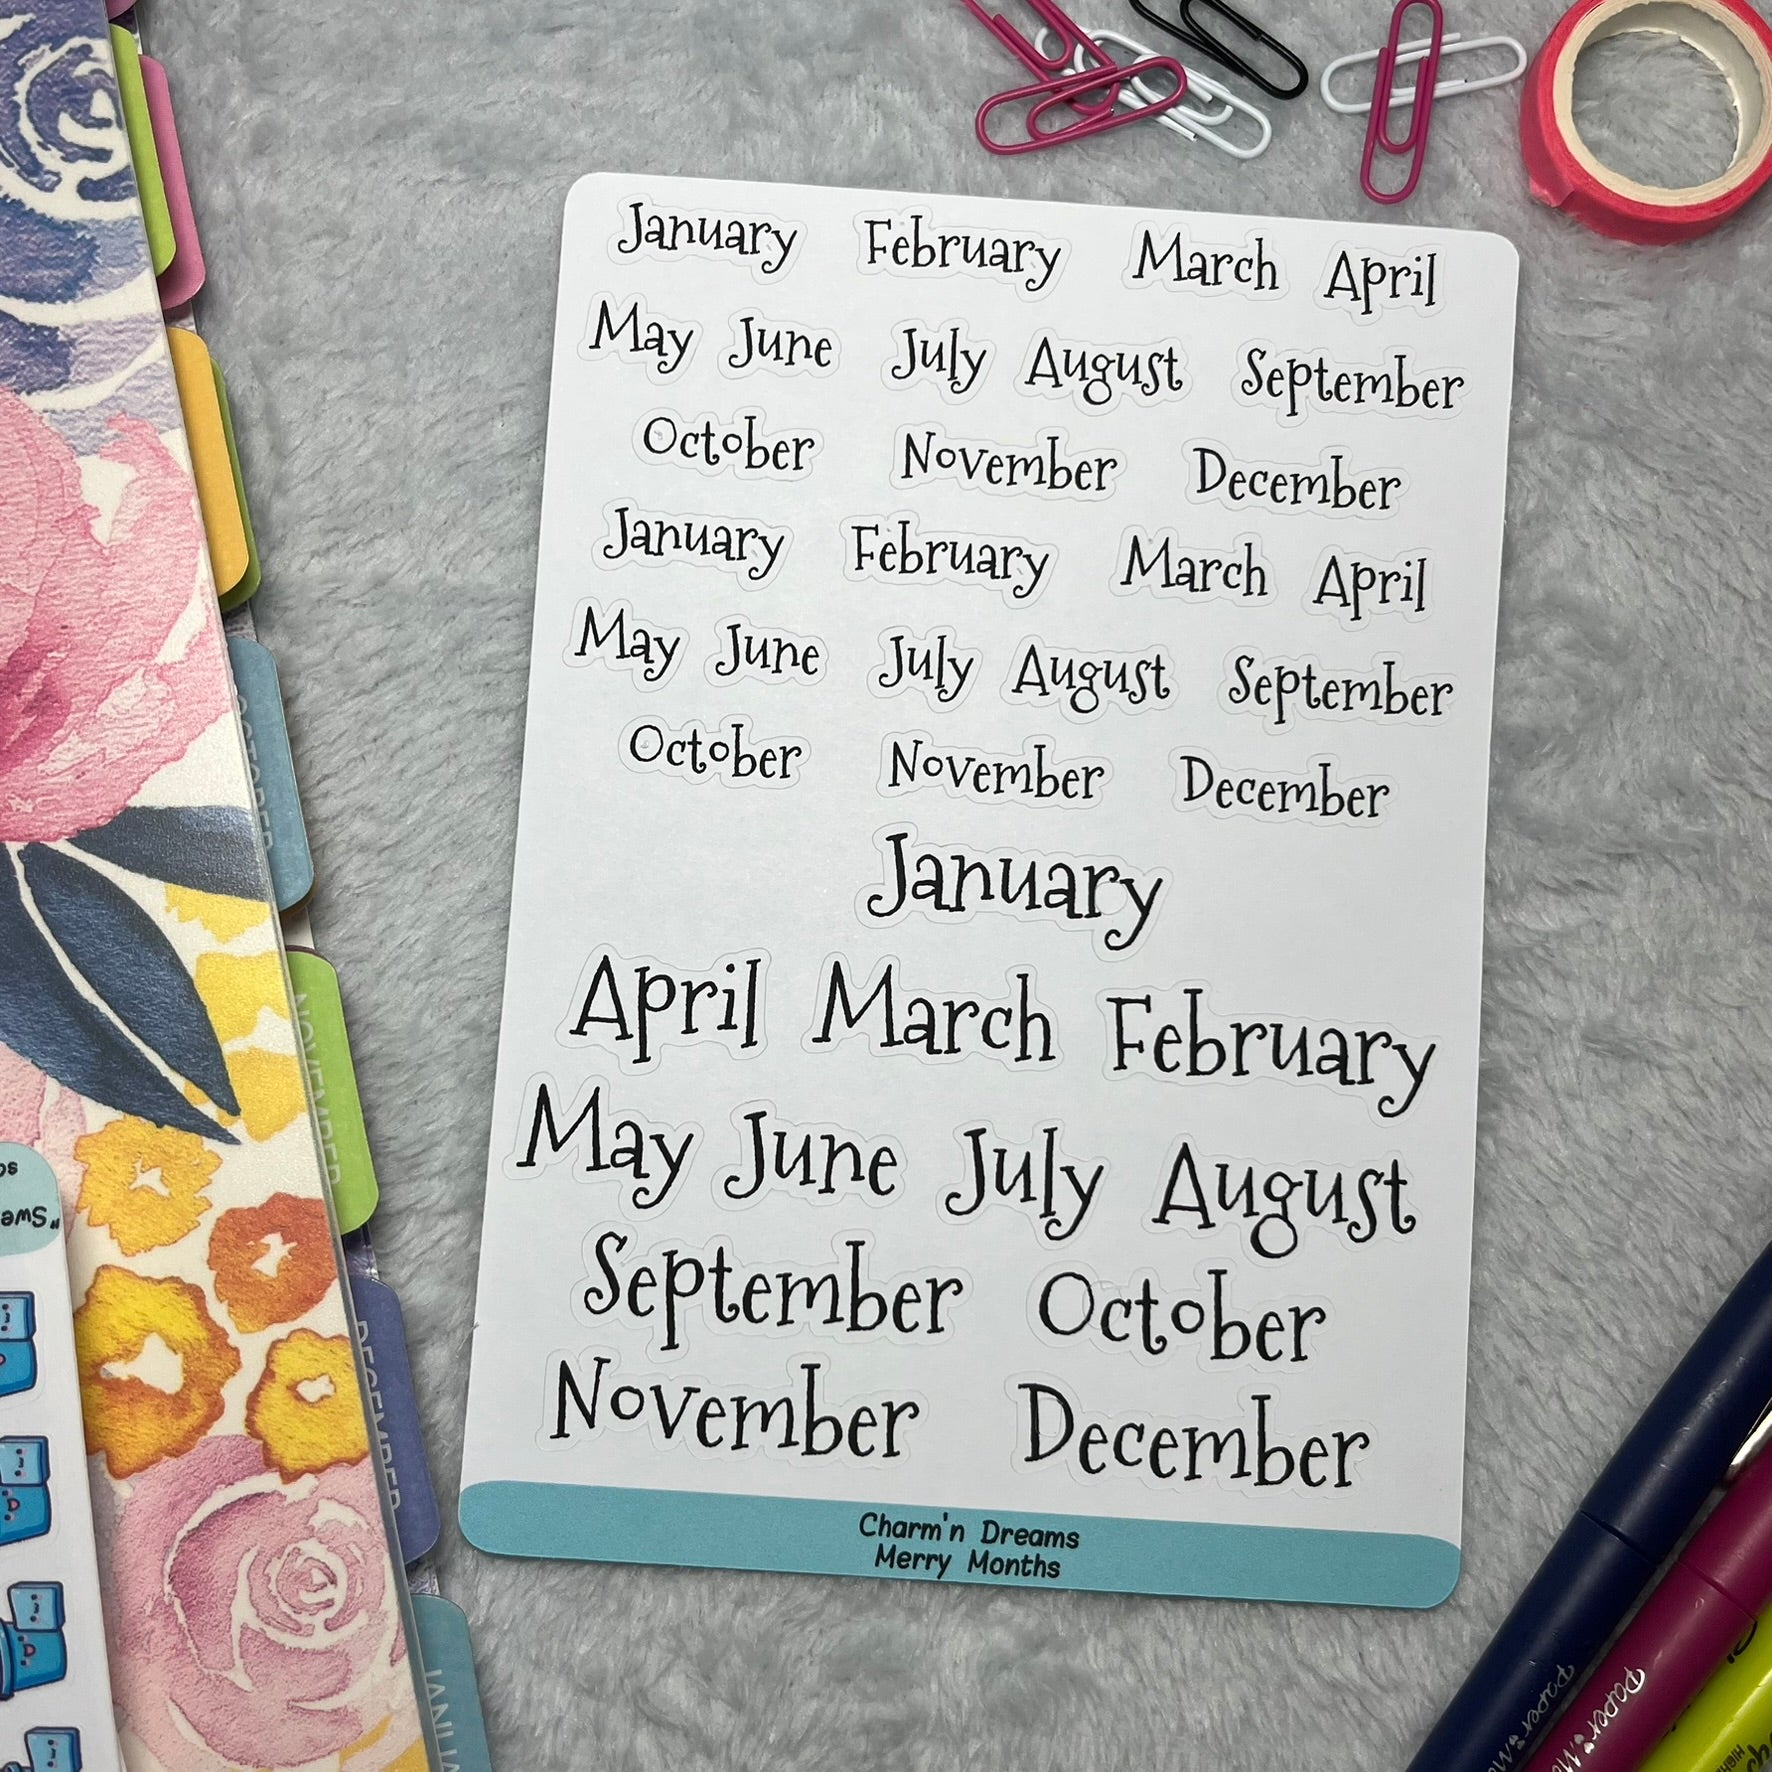 January February March April
May June July August September
October November December
January February March April
May June July August September
October November December
January
April March February
May June July August
September October
November December
Charm'n Dreams
Merry Months
OCTOBER
NOVEMBER
DECEMBER
Paper
Paper